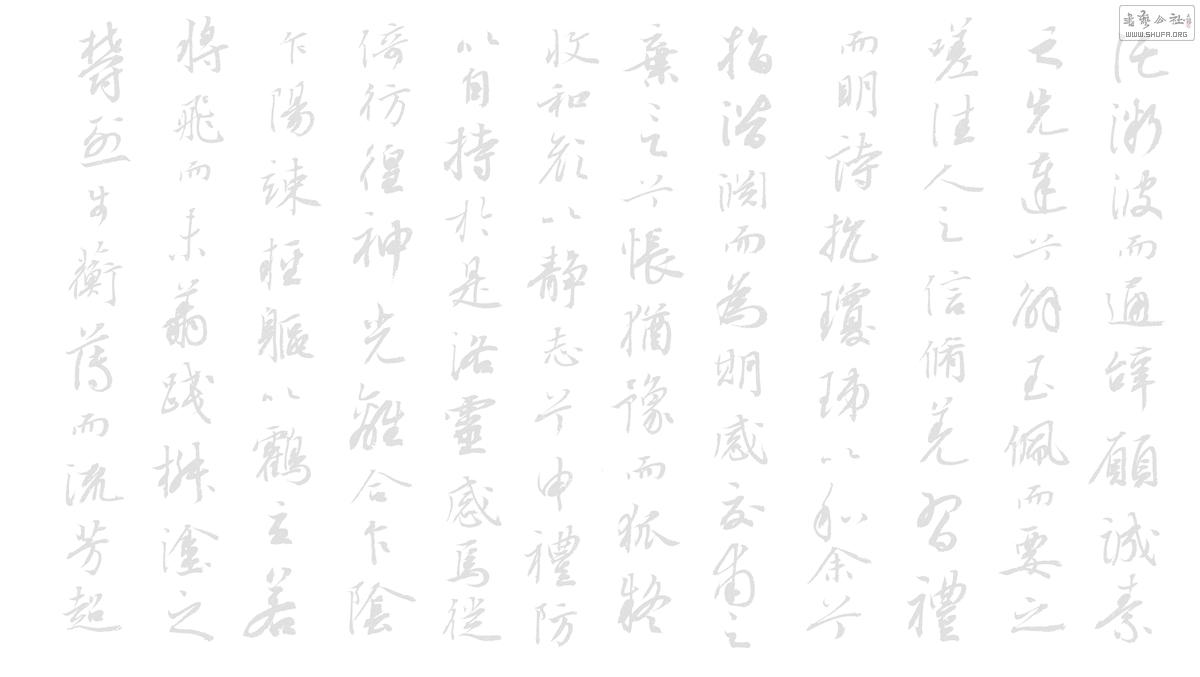 書藝公社
WWW.SHUFA.ORG
微波而通辭願誠素
之先達兮解玉佩而要之
嗟佳人之信脩羌習禮
而明詩抗瓊珶以和余兮
指潛淵而為期感交甫之
棄言兮悵猶豫而狐疑
收和顏以靜志兮申禮防
以自持於是洛靈感焉徙
倚彷徨神光離合乍陰
乍陽竦輕軀以鶴立若
將飛而未翔踐椒塗之
鬱烈步蘅薄而流芳超